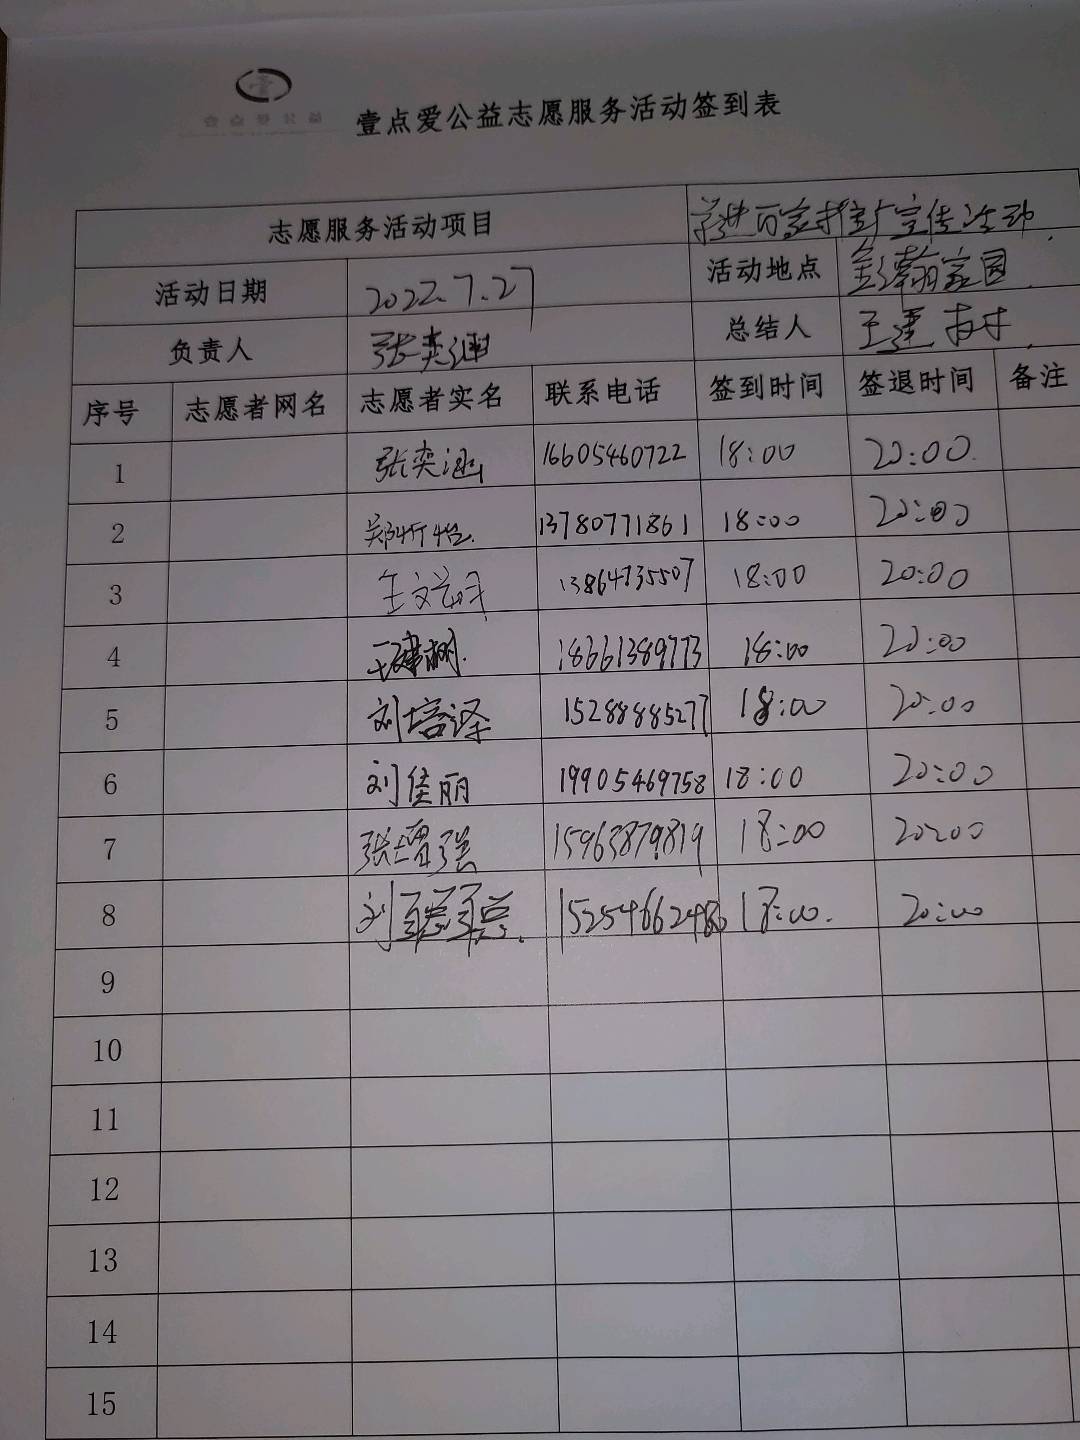 壹点爱公益
壹点爱公益志愿服务活动签到表
志愿服务活动项目 走进百家推广宣传活动
活动日期 2022.7.27 活动地点 家园
负责人 张奕涵 总结人 王建树
序号 志愿者网名 志愿者实名 联系电话 签到时间 签退时间 备注
1 张奕涵 16605460722 18:00 20:00
2 13780771861 18:00 20:00
3 王文 13864735507 18:00 20:00
4 王建树 18661389773 18:00 20:00
5 刘培泽 15288885277 18:00 20:00
6 刘佳丽 19905469758 18:00 20:00
7 张增强 15963879819 18:00 20:00
8 刘 18:00 20:00
9
10
11
12
13
14
15